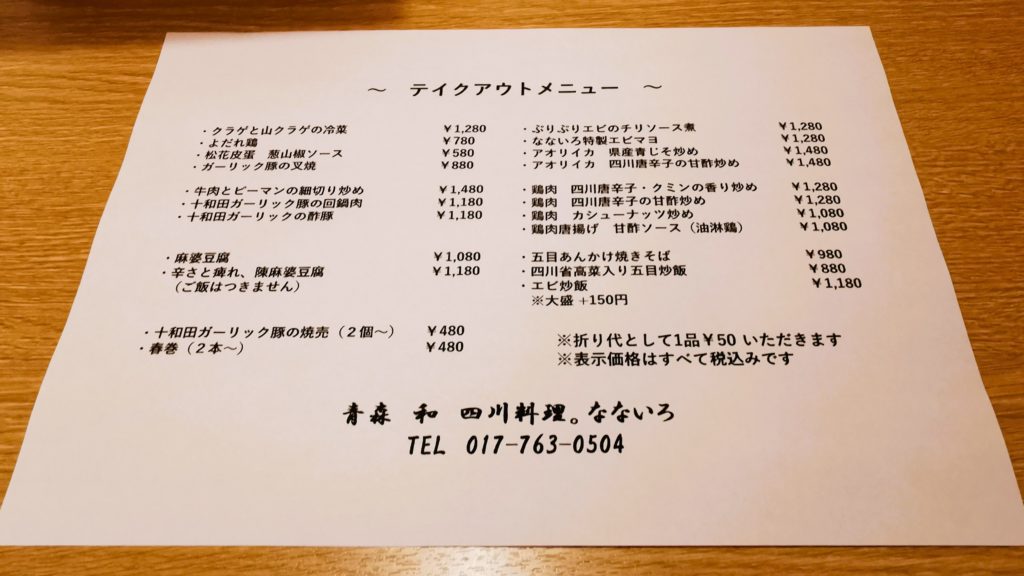 ～　テイクアウトメニュー　～
・クラゲと山クラゲの冷菜　¥1,280
・よだれ鶏　¥780
・松花皮蛋　葱山椒ソース　¥580
・ガーリック豚の叉焼　¥880
・牛肉とピーマンの細切り炒め　¥1,480
・十和田ガーリック豚の回鍋肉　¥1,180
・十和田ガーリックの酢豚　¥1,180
・麻婆豆腐　¥1,080
・辛さと痺れ、陳麻婆豆腐　¥1,180
（ご飯はつきません）
・十和田ガーリック豚の焼売（２個～）　¥480
・春巻（２本～）　¥480
・ぷりぷりエビのチリソース煮　¥1,280
・なないろ特製エビマヨ　¥1,280
・アオリイカ　県産青じそ炒め　¥1,480
・アオリイカ　四川唐辛子の甘酢炒め　¥1,480
・鶏肉　四川唐辛子・クミンの香り炒め　¥1,280
・鶏肉　四川唐辛子の甘酢炒め　¥1,280
・鶏肉　カシューナッツ炒め　¥1,080
・鶏肉唐揚げ　甘酢ソース（油淋鶏）　¥1,080
・五目あんかけ焼きそば　¥980
・四川省高菜入り五目炒飯　¥880
・エビ炒飯　¥1,180
※大盛 +150円
※折り代として1品￥50 いただきます
※表示価格はすべて税込みです
青森　和　四川料理。なないろ
TEL　017-763-0504